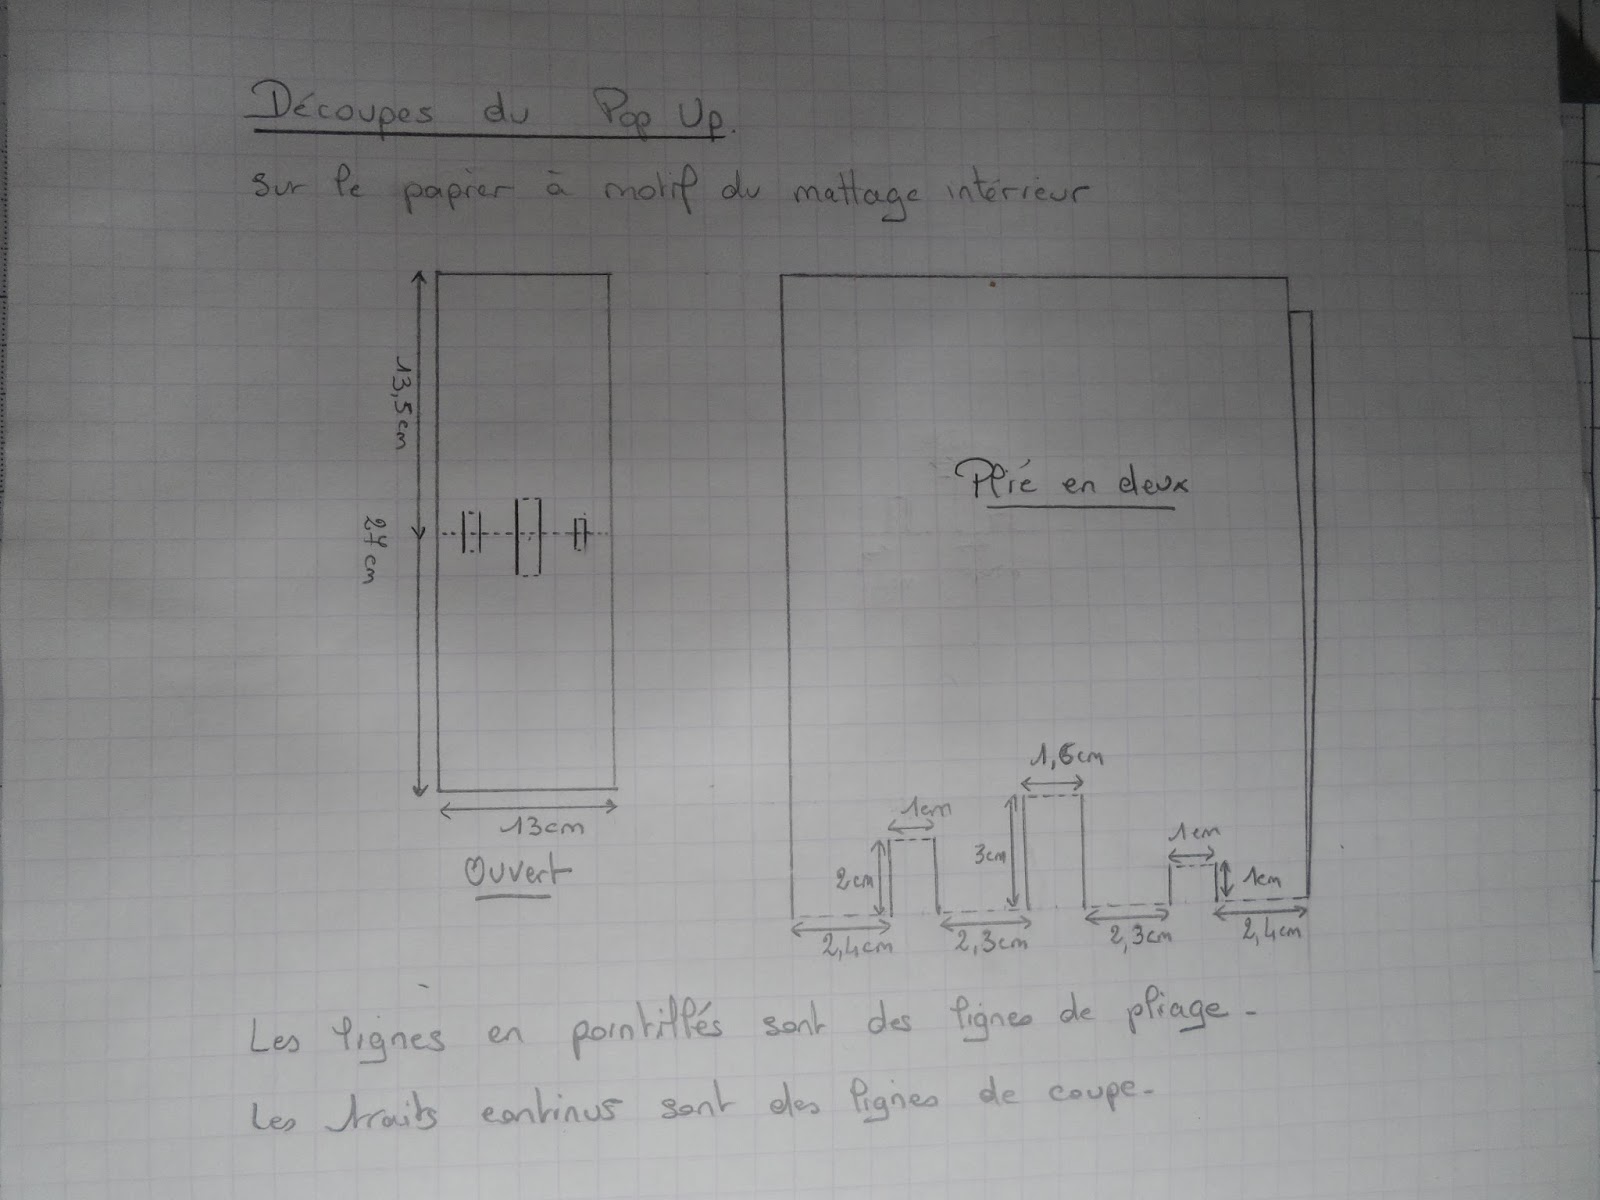 Découpes du Pop Up.
sur le papier à motif du mattage intérieur
13,5cm
27cm
13cm
Ouvert
Plié en deux
1,6cm
1cm
3cm
2cm
1cm
1cm
2,4cm
2,3cm
2,3cm
2,4cm
Les lignes en pointillés sont des lignes de pliage.
Les traits continus sont des lignes de coupe.